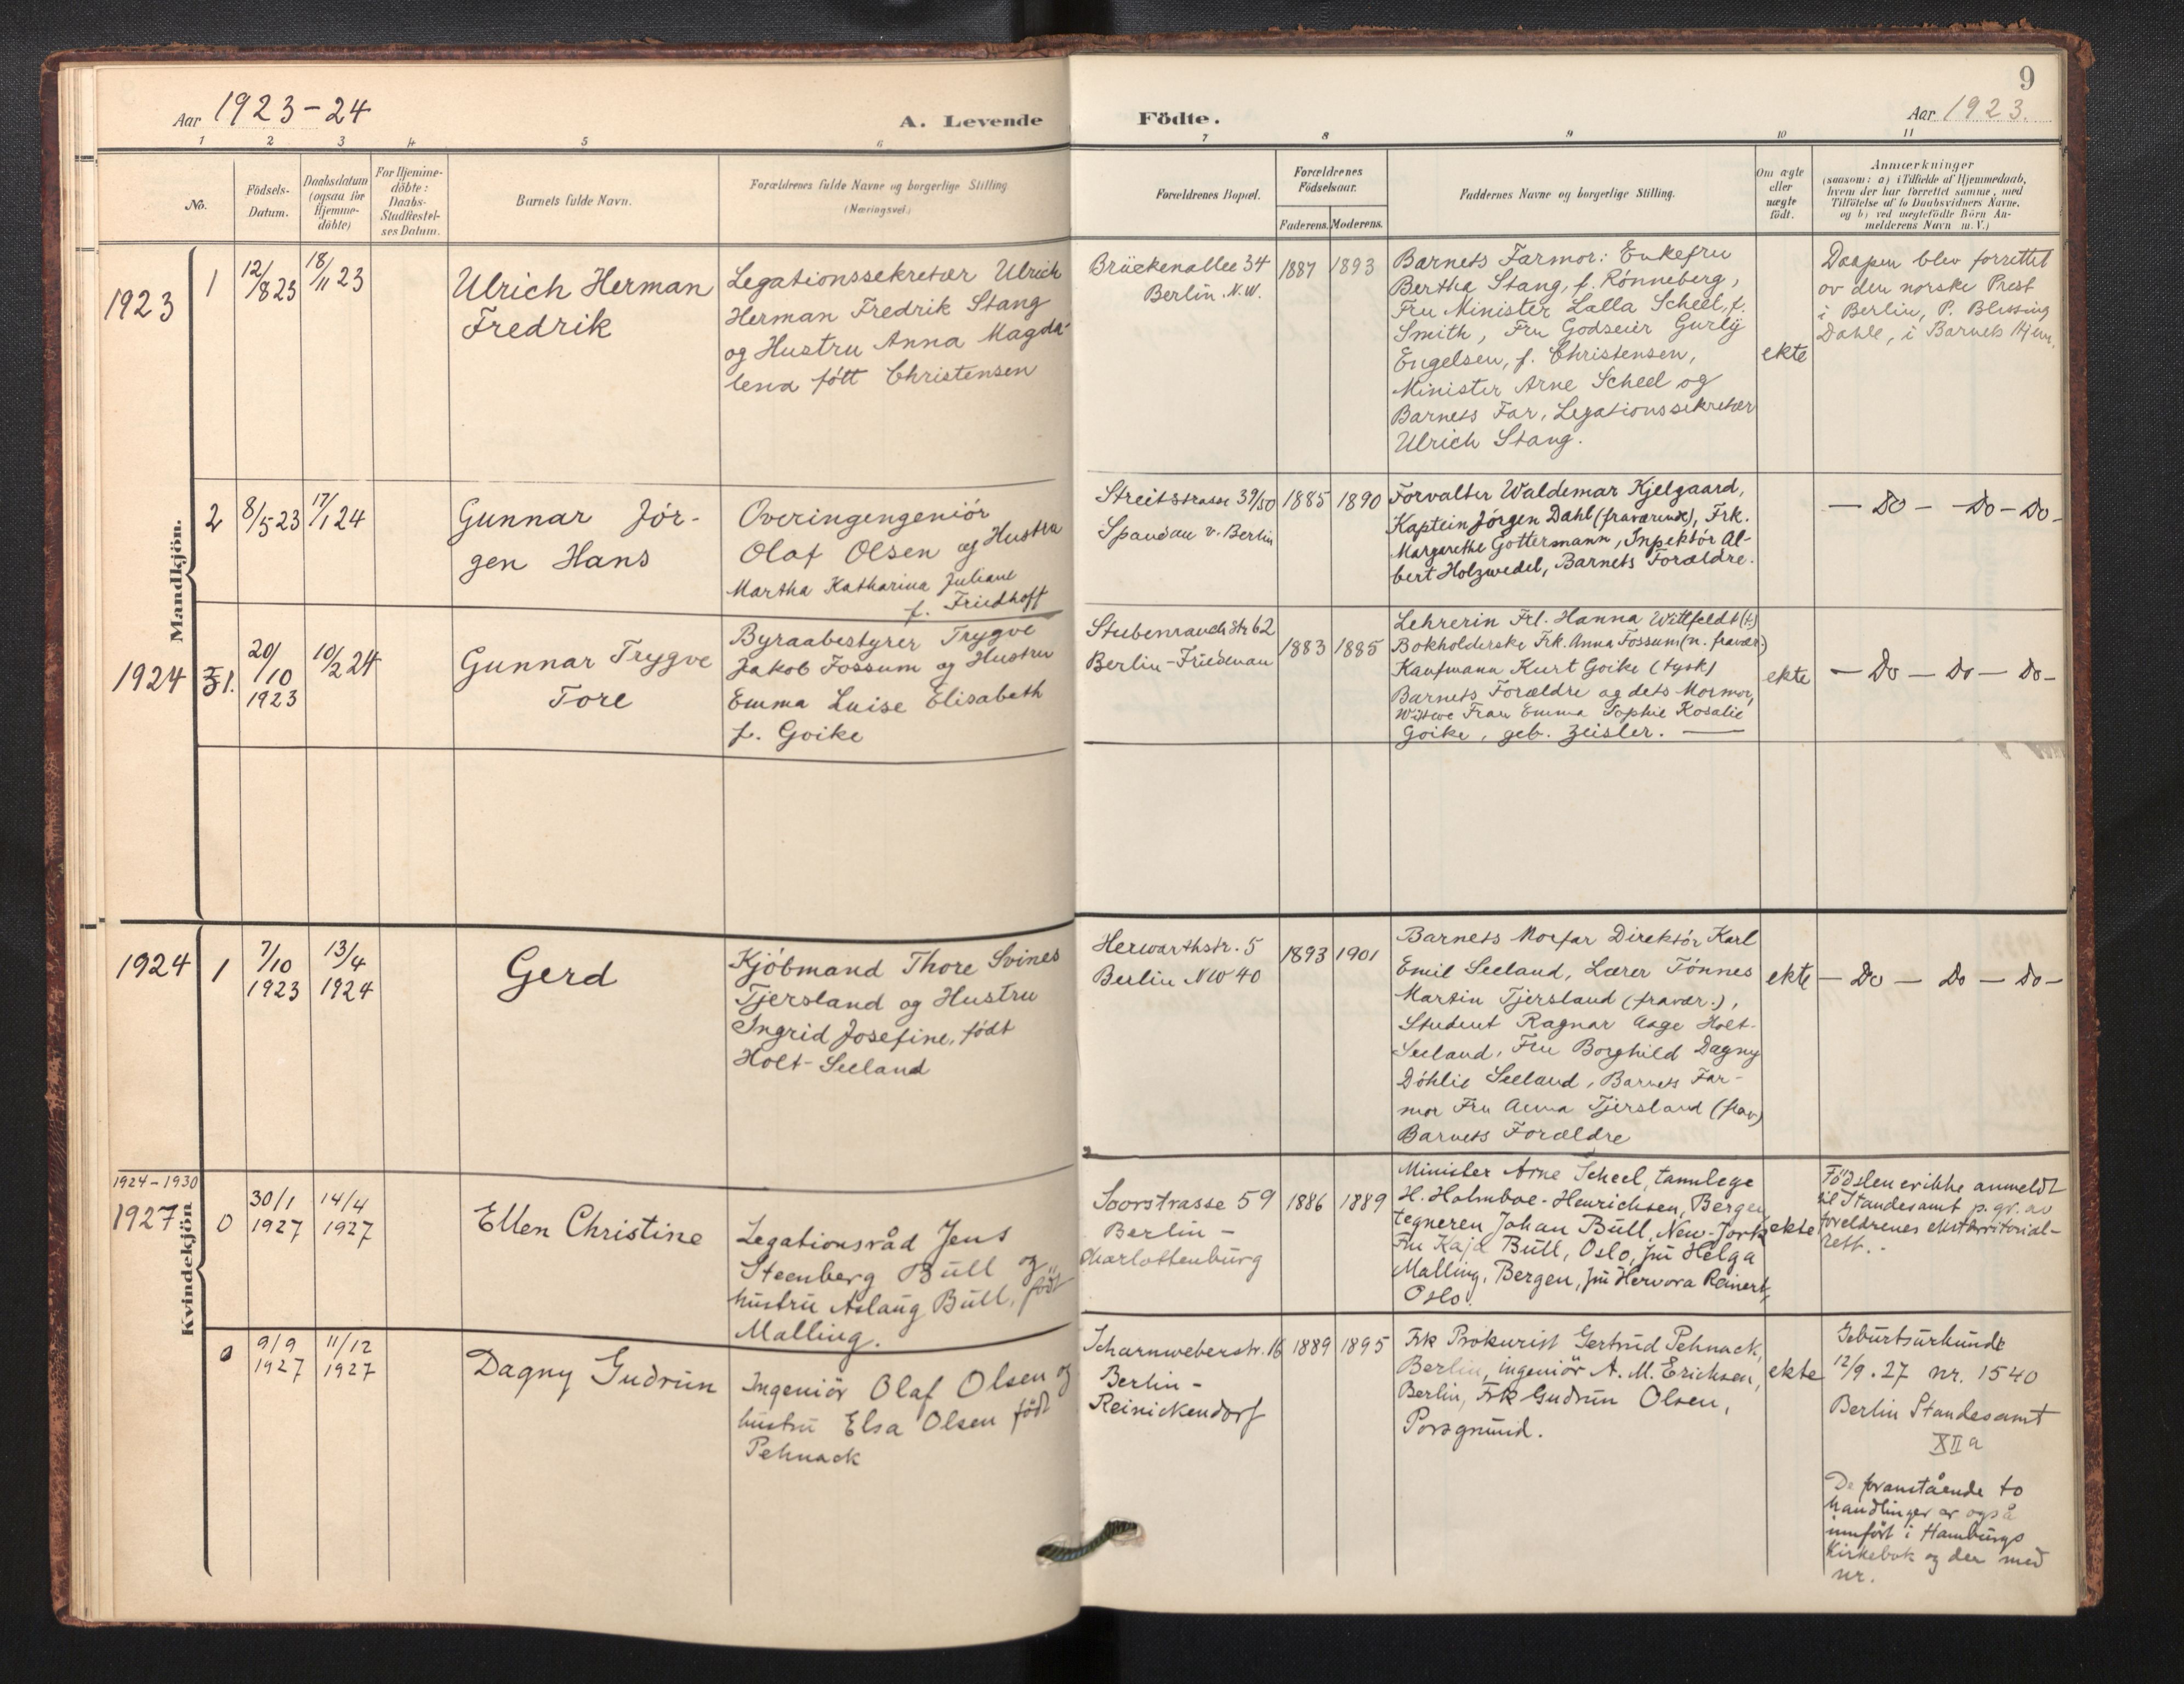 9
Aar 1923-24
A. Levende
Födte.
Aar 1923.
1 2 3 4 5 6 7 8 9 10 11
No.
Födsels-
Datum.
Daabsdatum
(ogsaa for
Hjemme-
döbte)
For Hjemme-
döbte:
Daabs-
Stadfæstel-
ses Datum.
Barnets fulde Navn.
Forældrenes fulde Navne og borgerlige Stilling
(Næringsvei.)
Forældrenes Bopæl.
Forældrenes
Födselsaar.
Faderens. Moderens.
Faddernes Navne og borgerlige Stilling.
Om ægte
eller
uægte
födt.
Anmærkninger
(saasom: a) i Tilfælde af Hjemmedaab,
hvem der har forrettet samme, med
Tilföielse af to Daabsvidners Navne.
og b) ved uægtefödte Börn An-
melderens Navn m. V.)
Mandkjön.
1923
1
12/8 23
18/11 23
Ulrich Herman
Fredrik
Legationssekretær Ulrich
Herman Fredrik Stang
og Hustru Anna Magda-
lena fött Christensen
Brückenallee 34
Berlin. N.W.
1887
1893
Barnets Farmor: Enkefru
Bertha Stang, f. Rønneberg,
Fru Minister Lalla Scheel, f.
Smith, Fru Godseier Gurly
Engelsen, f. Christensen,
Minister Arne Scheel og
Barnets Far, Legationssekretær
Ulrich Stang.
ekte
Daapen blev forrettet
av den norske Prest
i Berlin, P. Blessing
Dahle, i Barnets Hjem.
2
8/5 23
17/1 24
Gunnar Jör-
gen Hans
Overingengeniör
Olaf Olsen og Hustru
Martha Katharina Juliane
f. Friedhoff
Streitstrasse 39/50
Spandau v. Berlin
1885
1890
Forvalter Waldemar Kjelgaard,
Kaptein Jörgen Dahl (fraværende), Frk.
Margarethe Gottermann, Inpektör Al-
bert Holzwedel, Barnets Forældre.
— Do — Do — Do —
1924
1.
20/10
1923
10/2 24
Gunnar Trygve
Tore
Byraabestyrer Trygve
Jakob Fossum og Hustru
Emma Luise Elisabeth
f. Goike
Stubenrauch Str 62
Berlin-Friedenau
1883
1885
Lehrerin Frl. Hanna Wittfeldt (t.)
Bokholderske Frk. Anna Fossum (n. fravær.)
Kaufmann Kurt Goike (tysk)
Barnets Forældre og dets Mormor,
Witwe Frau Emma Sophie Rosalie
Goike, geb. Zeisler. —
ekte
— Do — Do — Do —
Kvindekjön
1924
1
7/10
1923
13/4
1924
Gerd
Kjöbmand Thore Svines
Tjersland og Hustru
Ingrid Josefine, födt
Holt-Seeland
Herwarthstr. 5
Berlin NW 40
1893
1901
Barnets Morfar Direktör Karl
Emil Seeland, Lærer Tönnes
Martin Tjersland (fravær.),
Student Ragnar Aage Holt-
Seeland, Fru Borghild Dagny
Döhlie Seeland, Barnets Far-
mor Fru Anna Tjersland (frav)
Barnets Forældre
ekte
— Do — Do — Do —
1924-1930
1927
0
30/1
1927
14/4
1927
Ellen Christine
Legationsråd Jens
Steenberg Bull og
hustru Aslaug Bull, födt
Malling.
Soorstrasse 59
Berlin -
Charlottenburg
1886
1889
Minister Arne Scheel, tannlege
H. Holmboe-Henrichsen, Bergen
tegneren Johan Bull, New-Jork
Fru Kaja Bull, Oslo, fru Helga
Malling, Bergen, fru Hervora Reinert,
Oslo.
ekte
Födslen er ikke anmeldt
til Standesamt p. gr. av
foreldrenes eksterritorial-
rett. -
0
9/9
1927
11/12
1927
Dagny Gudrun
Ingeniör Olaf Olsen og
hustru Elsa Olsen födt
Pehnack
Scharnweberstr. 16
Berlin -
Reinickendorf
1889
1895
Frk Prokurist Gertrud Pehnack,
Berlin, ingeniör A. M. Erichsen,
Berlin, Frk Gudrun Olsen,
Porsgrund.
ekte
Geburtsurkunde
12/9. 27 nr. 1540
Berlin Standesamt
XII a
De foranstående to
handlinger er også
innfört i Hamburgs
Kirkebok og der med
nr.